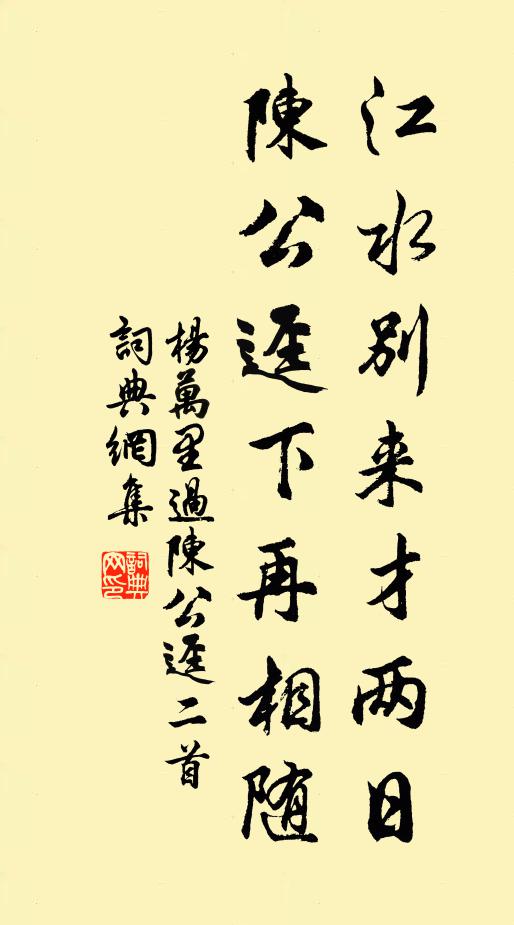 江水别来才两日
陳公逕下再相随
楊萬里過陳公逕二首
詞典網集
詞典网印